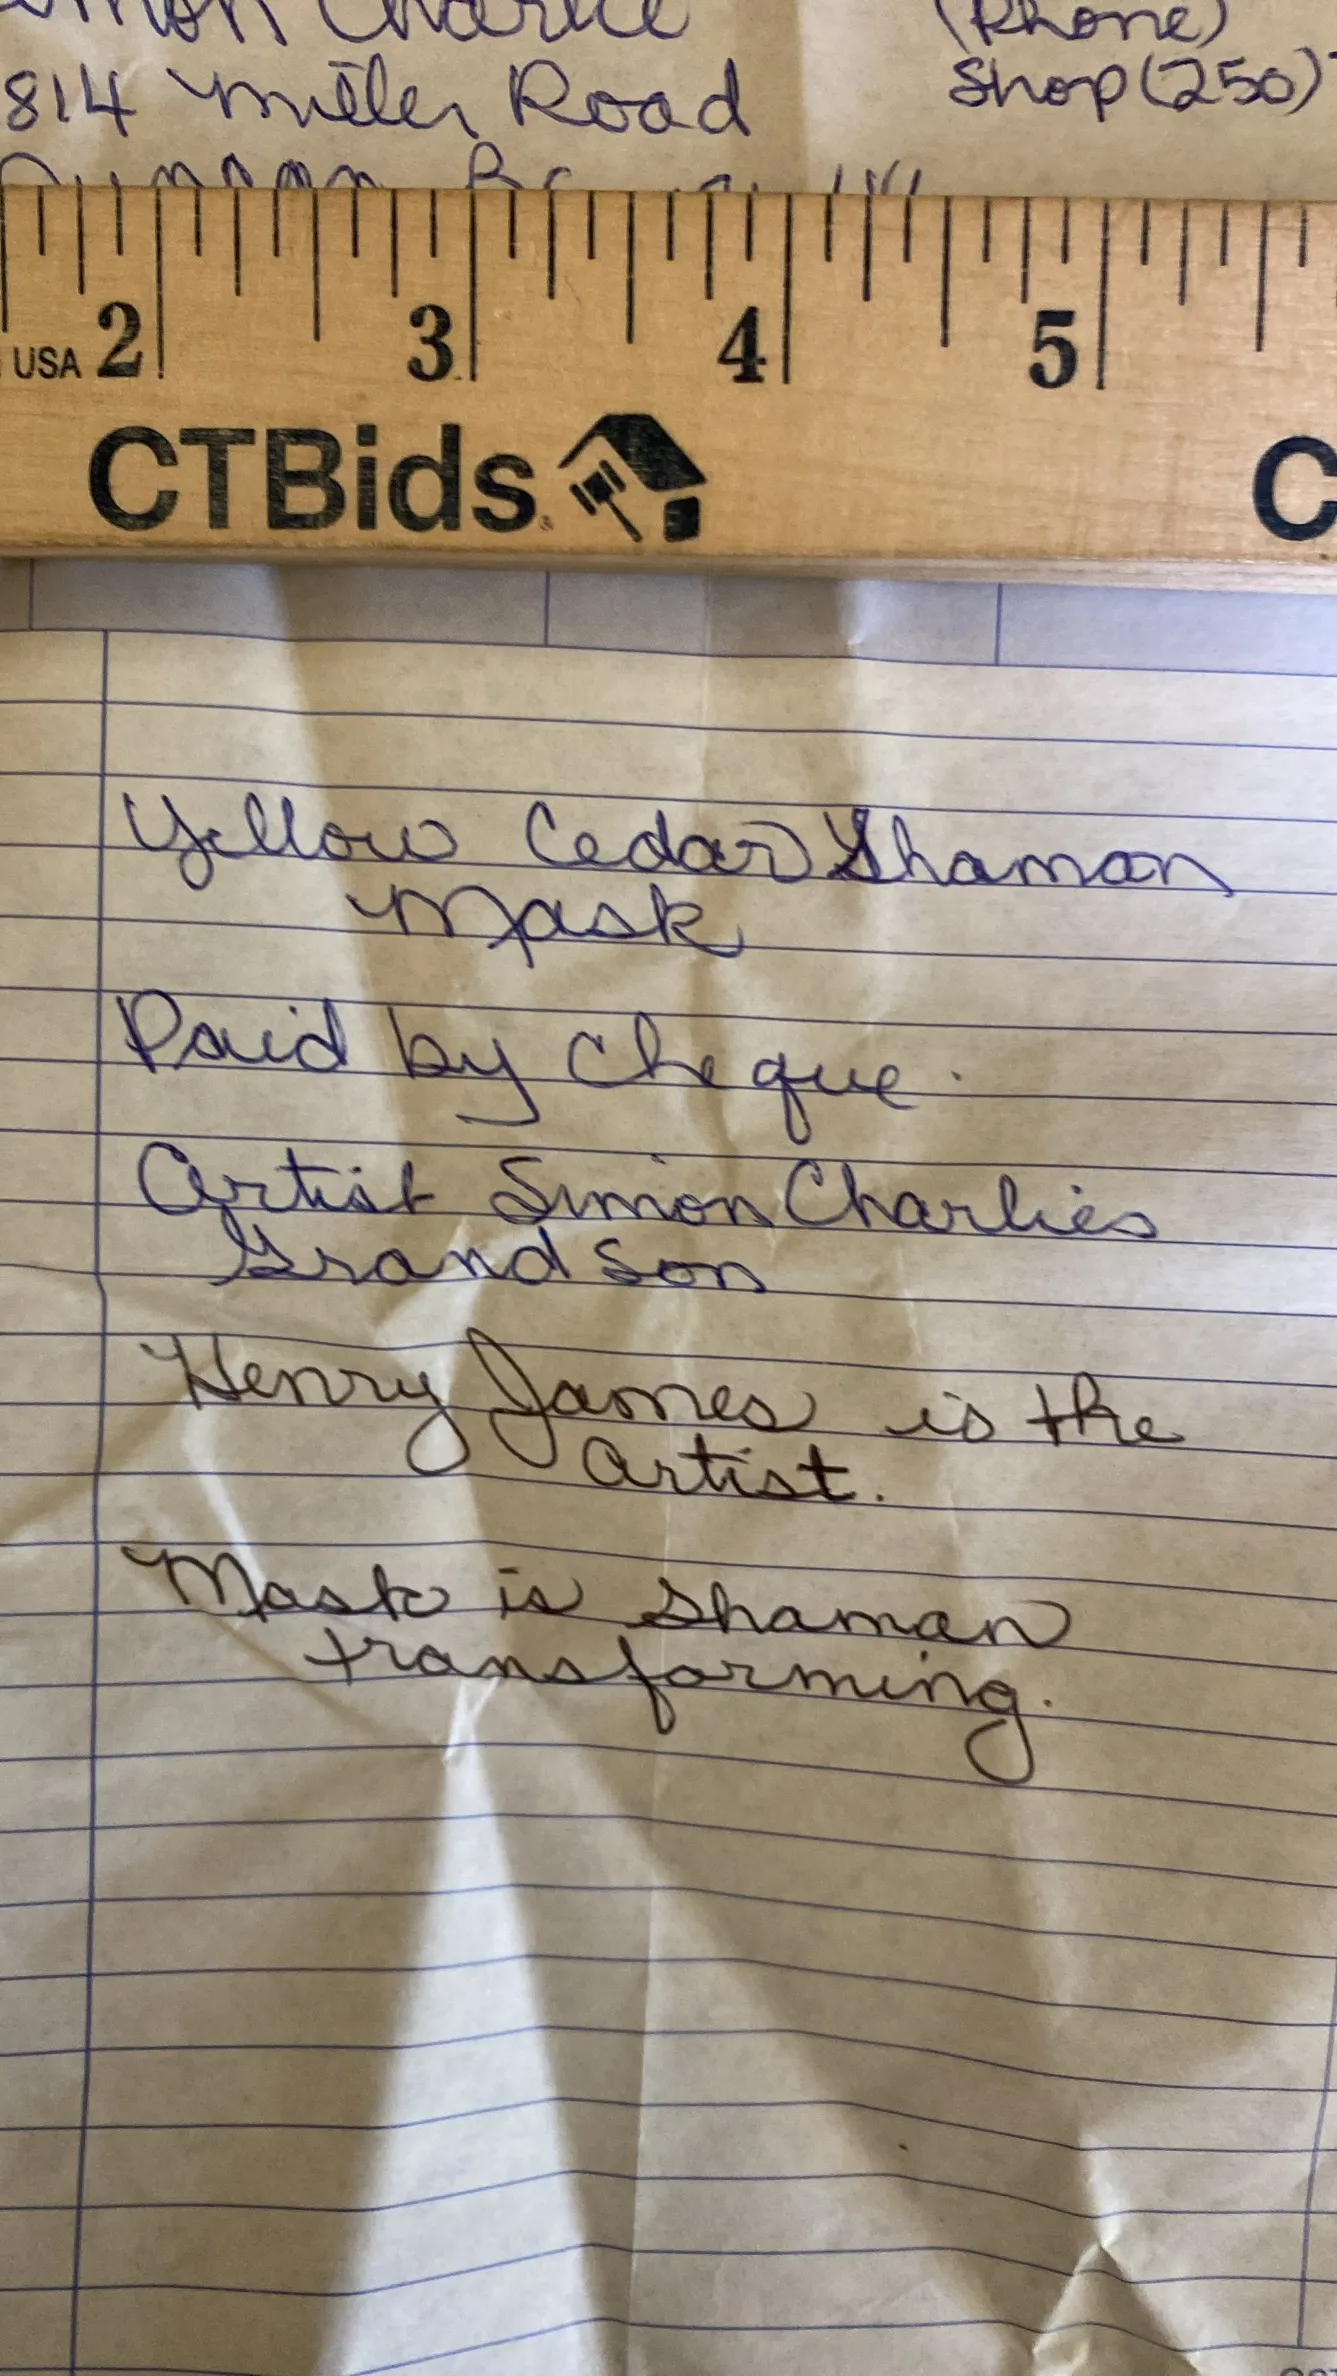 Charlie (Phone)
814 Miller Road Shop (250)
2 3 4 5
USA
CTBids. C
Yellow Cedar Shaman
Mask
Paid by Cheque.
Artist Simon Charlies
Grand Son
Henry James is the
artist.
Mask is Shaman
transforming.